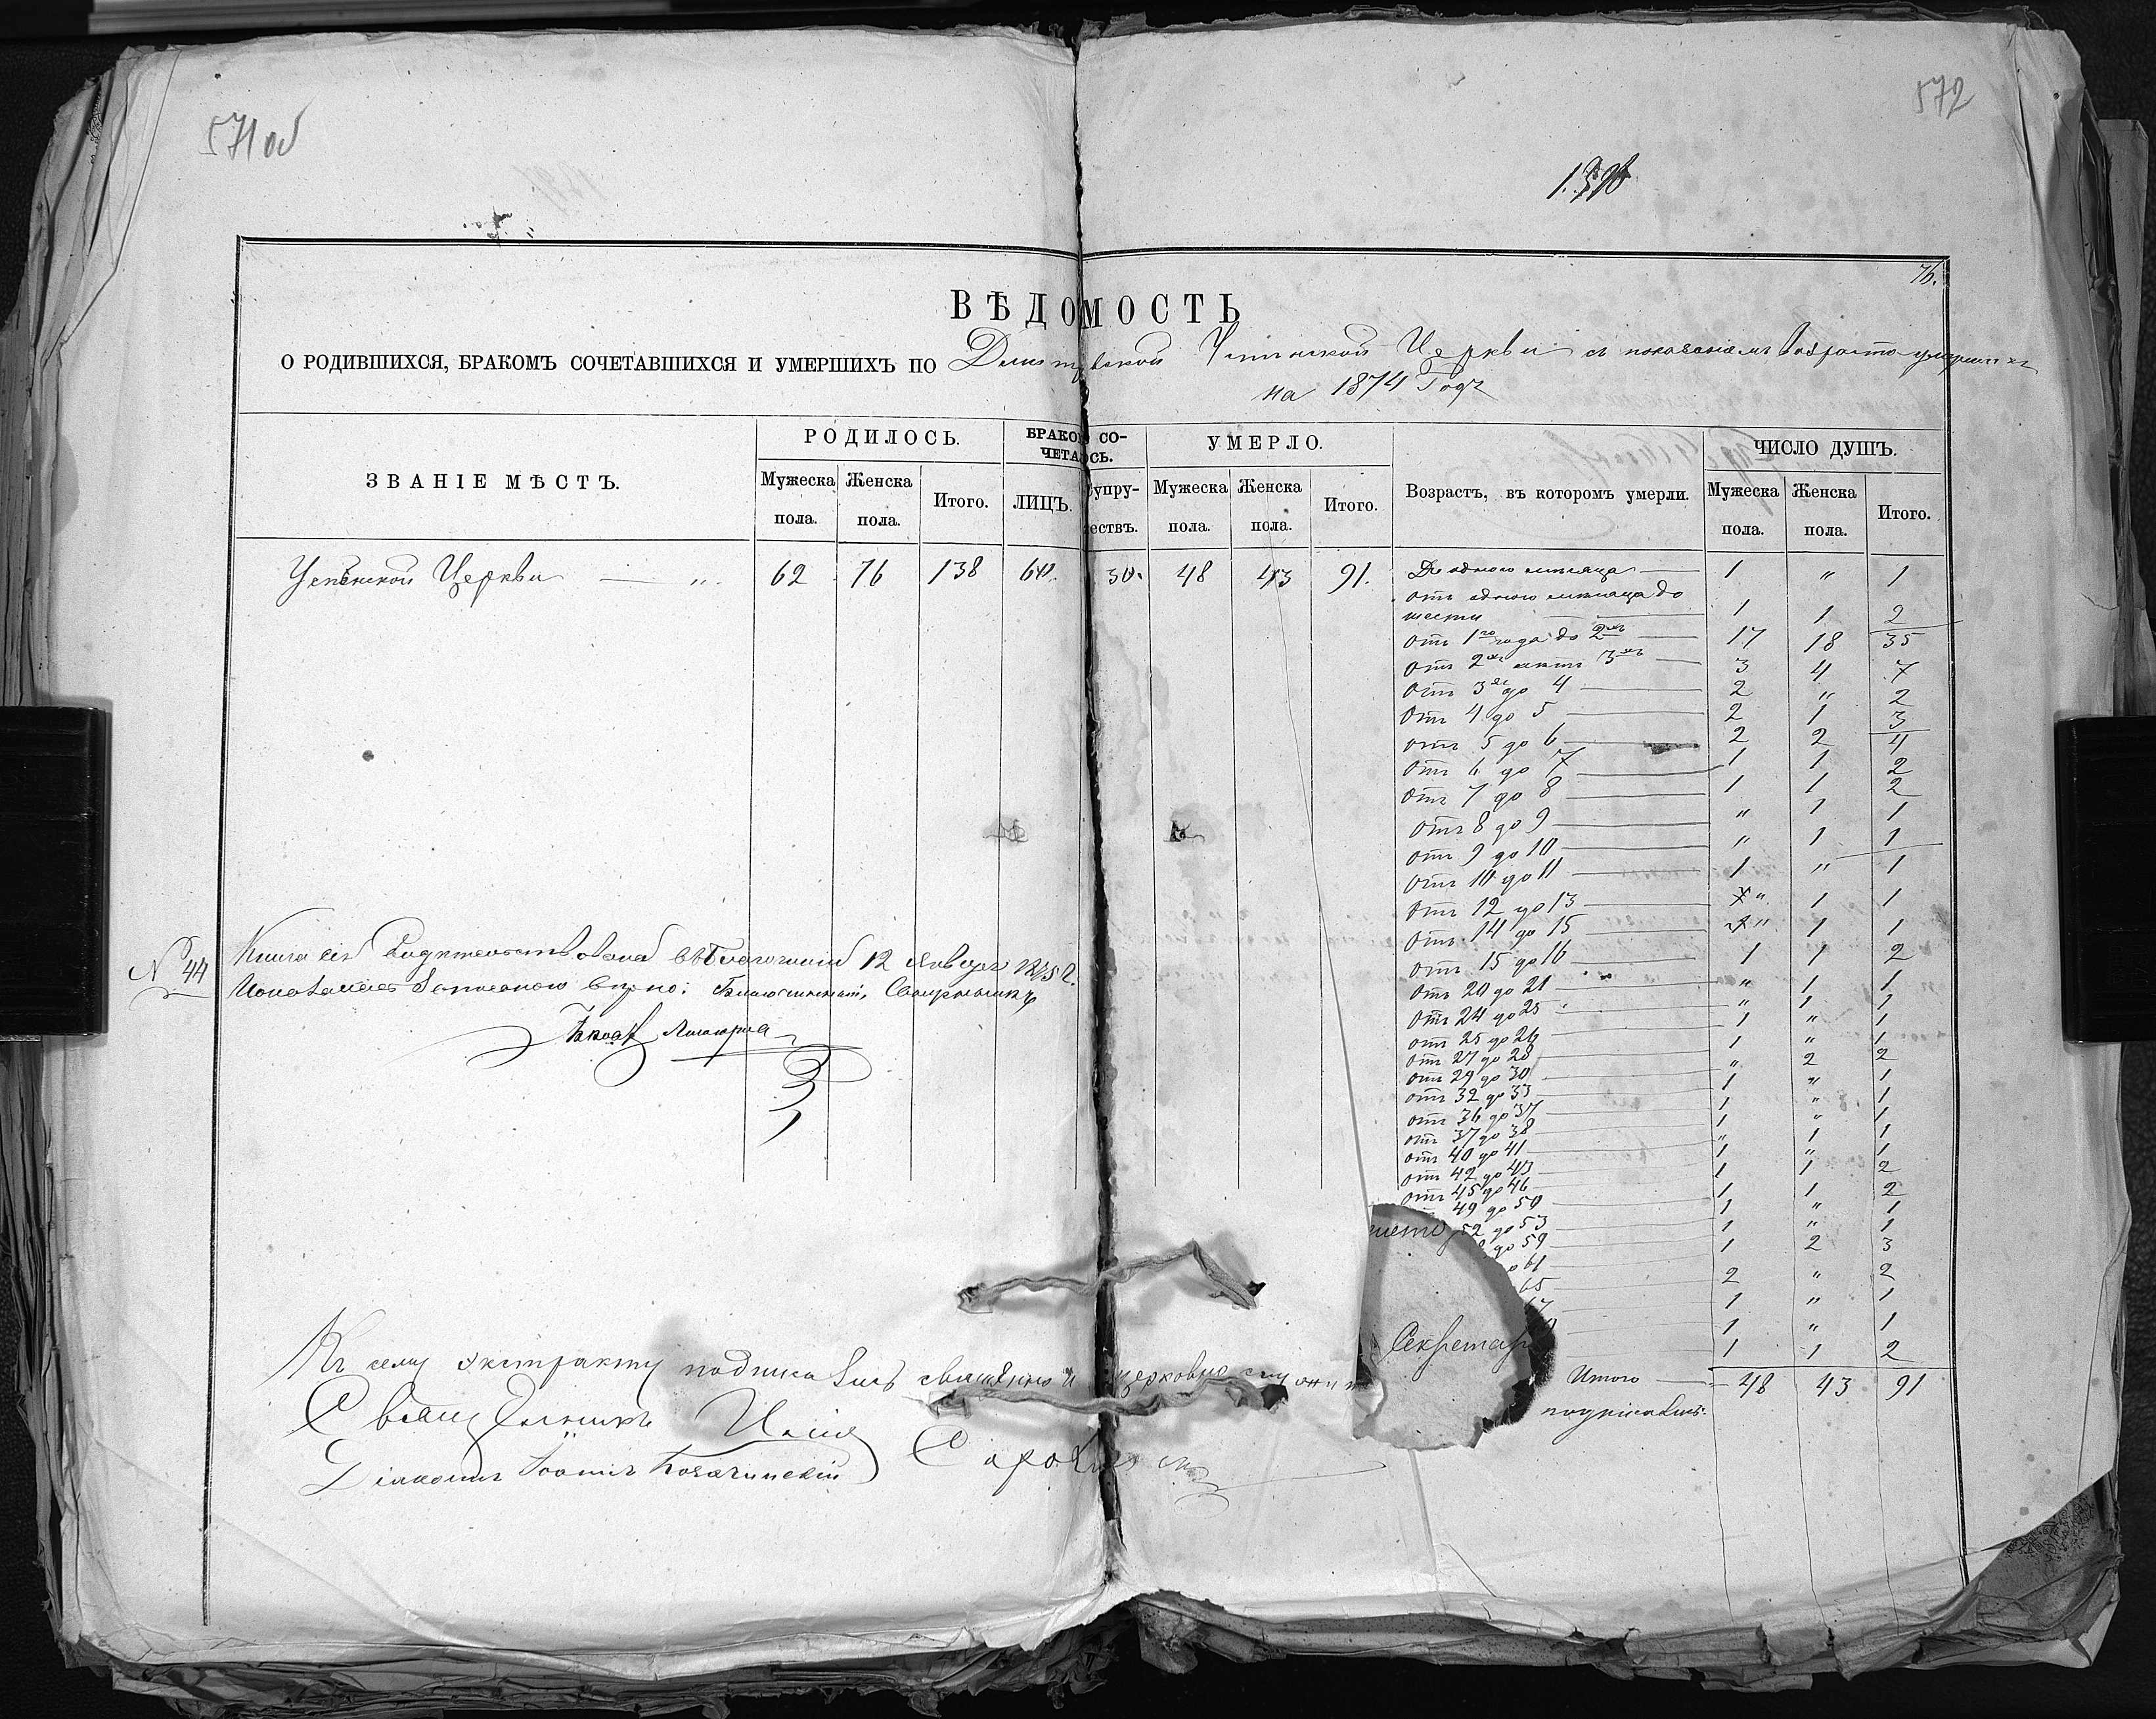 571 об
572
76.
ВѢДОМОСТЬ
О РОДИВШИХСЯ, БРАКОМЪ СОЧЕТАВШИХСЯ И УМЕРШИХЪ ПО Дмитровской Успенской Церкви съ показаніемъ возраста умершихъ
на 1874 Годъ
ЗВАНІЕ МѢСТЪ.
РОДИЛОСЬ.
БРАКОМ СО-
ЧЕТАЛОСЬ.
УМЕРЛО.
Возрастъ, въ которомъ умерли.
ЧИСЛО ДУШЪ.
Мужеска пола. Женска пола. Итого. ЛИЦЪ. Супру-жествъ. Мужеска пола. Женска пола. Итого. Мужеска пола. Женска пола. Итого.
Успенской Церкви — „ 62 76 138 60. 30. 48 43 91.
До одного мѣсяца 1 „ 1
отъ одного мѣсяца до
шести 1 1 2
отъ 1го года до 2хъ 17 18 35
отъ 2хъ лѣтъ 3хъ 3 4 7
отъ 3хъ до 4 2 „ 2
отъ 4 до 5 2 1 3
отъ 5 до 6 2 2 4
отъ 6 до 7 1 1 2
отъ 7 до 8 1 1 2
отъ 8 до 9 „ 1 1
отъ 9 до 10 „ 1 1
отъ 10 до 11 1 „ 1
отъ 12 до 13 „ 1 1
отъ 14 до 15 „ 1 1
отъ 15 до 16 1 1 2
отъ 20 до 21 „ 1 1
отъ 24 до 25 „ 1 1
отъ 25 до 26 1 „ 1
отъ 27 до 28 1 „ 1
отъ 29 до 30 „ 2 2
отъ 32 до 33 1 „ 1
отъ 36 до 37 1 „ 1
отъ 37 до 38 1 „ 1
отъ 40 до 41 „ 1 1
отъ 42 до 43 1 „ 1
отъ 45 до 46 1 1 2
49 до 50 1 1 2
52 до 53 1 „ 1
до 59 1 „ 1
61 1 2 3
65 2 „ 2
67 1 „ 1
1 „ 1
1 1 2
Итого — 48 43 91
№ 44
Книга сія свидѣтельствована 12 Января 1875 г.
Къ сему экстракту подписались священно и церковно
подписались:
Секретарь
Священникъ Илія
Діаконъ Іоаннъ